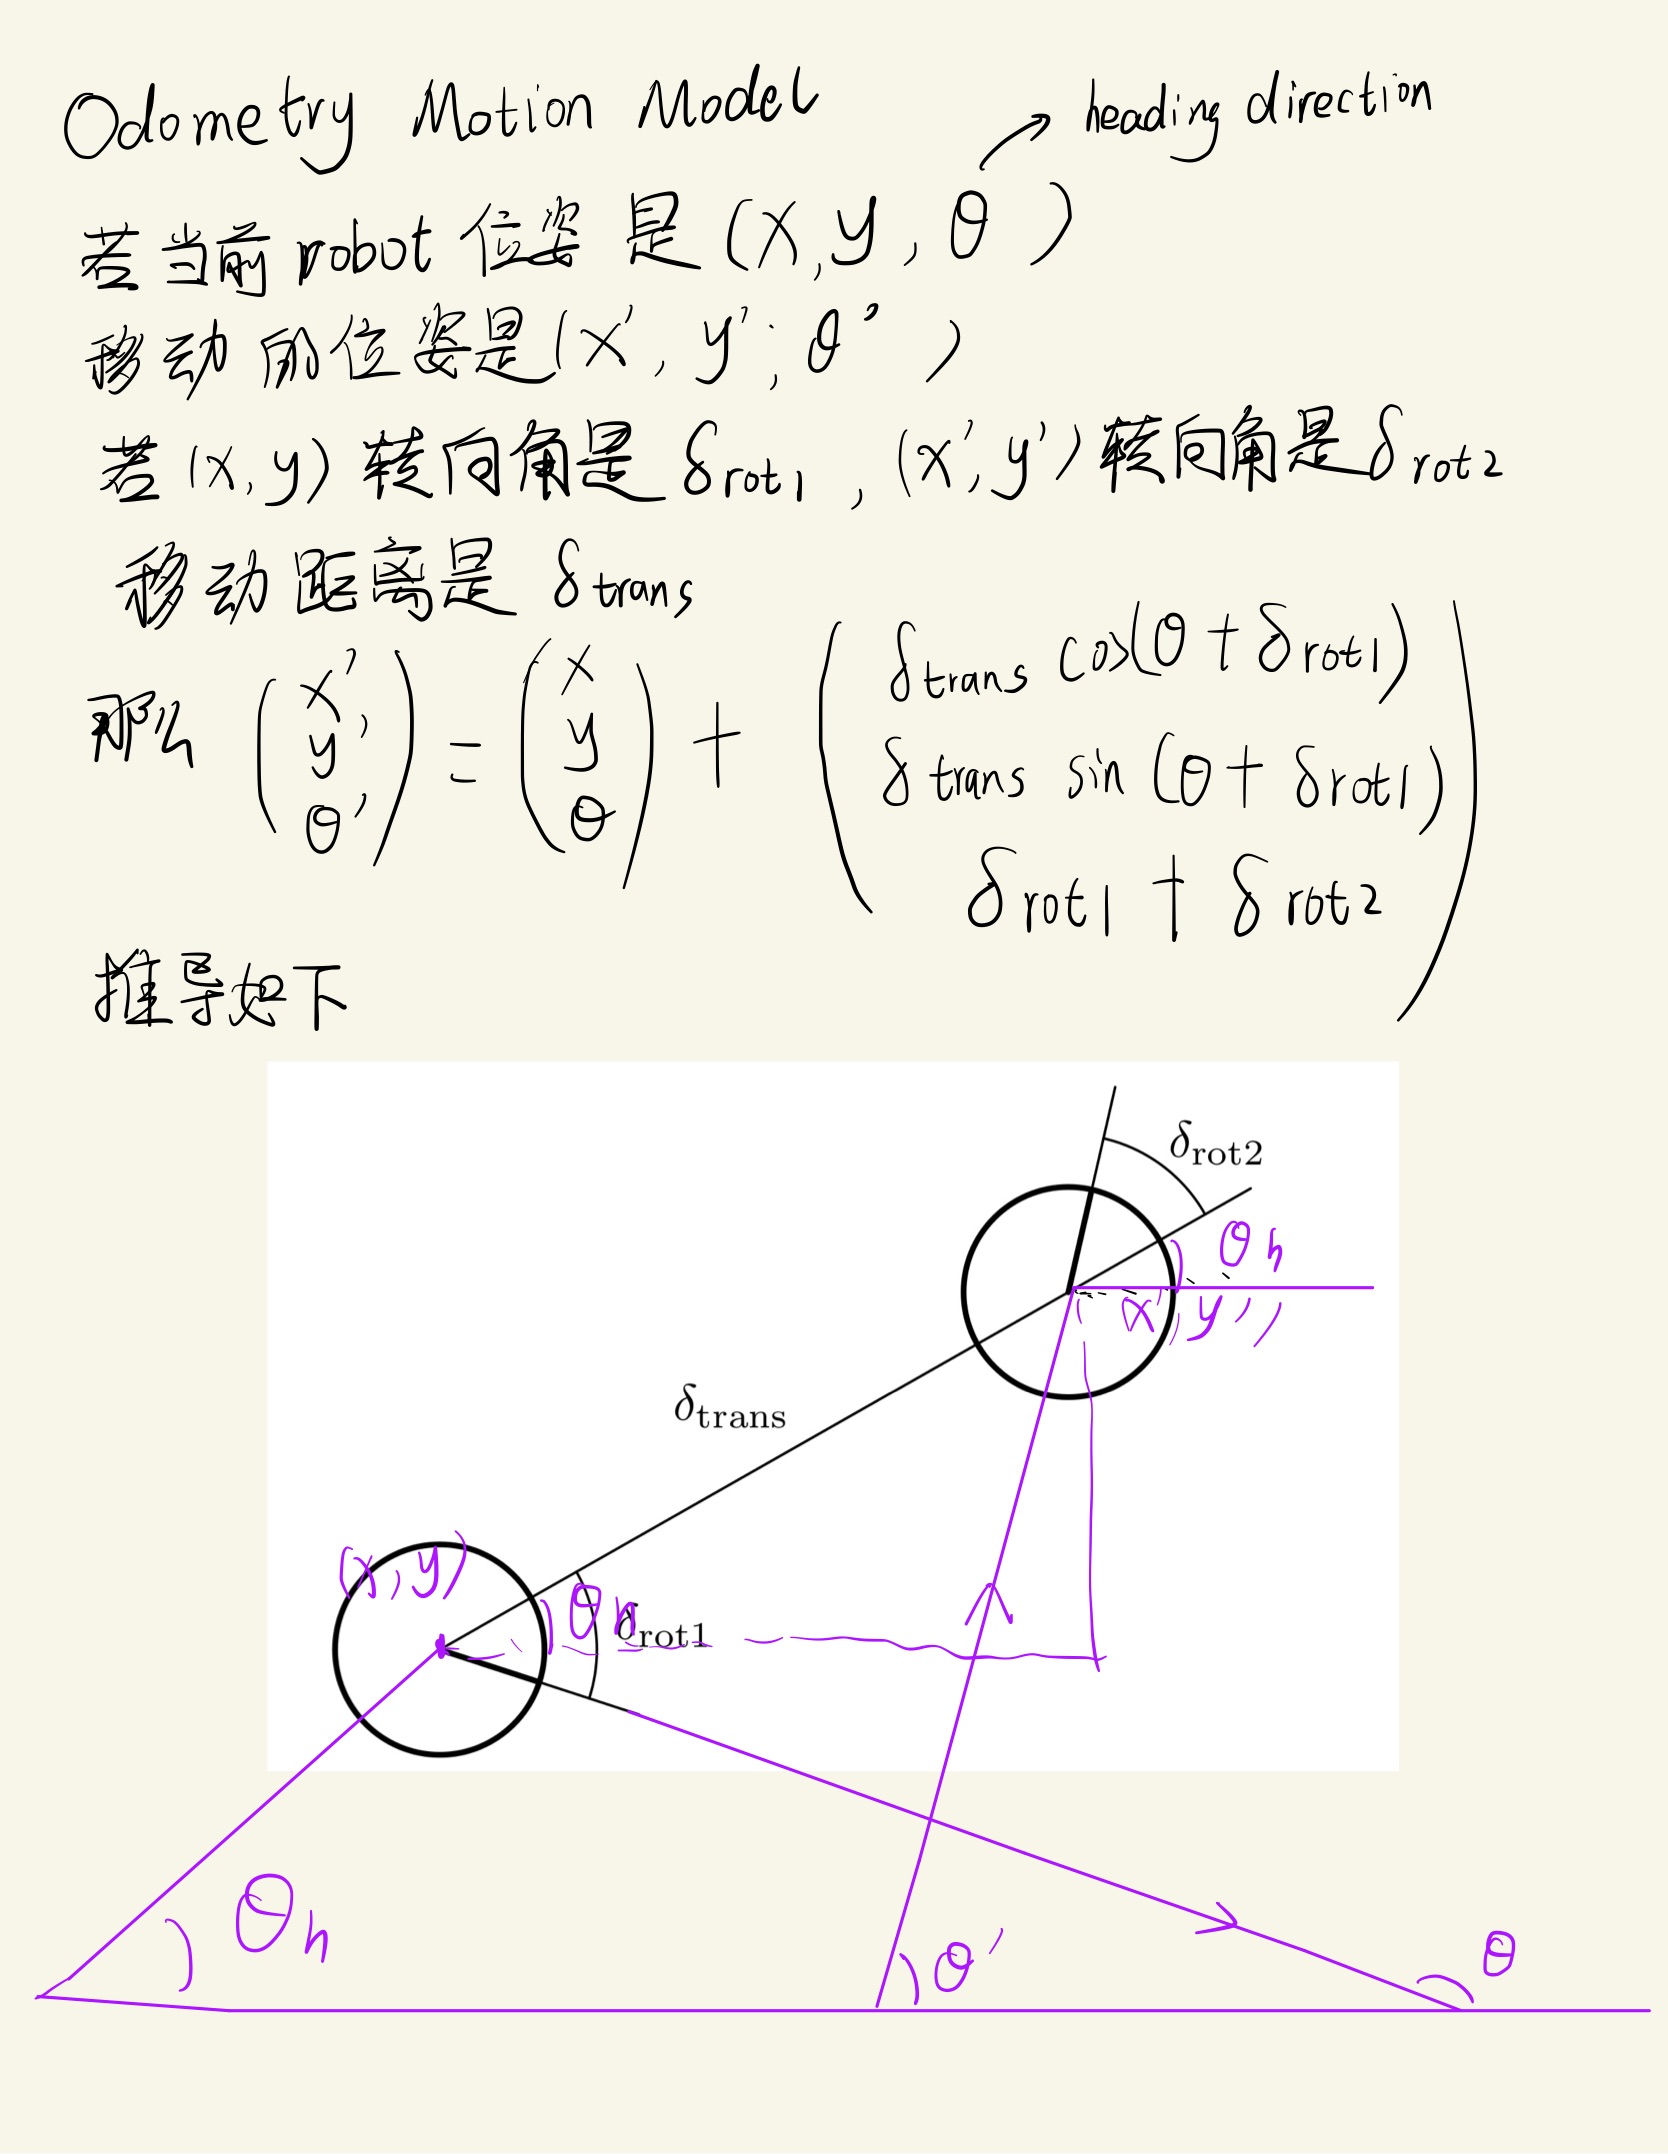 Odometry Motion Model
heading direction
若当前robot位姿是(x,y,θ)
移动前位姿是(x',y',θ')
若(x,y)转向角是δrot1,(x',y')转向角是δrot2
移动距离是δtrans
那么 (x' y' θ') = (x y θ) + (δtrans cos(θ+δrot1) δtrans sin(θ+δrot1) δrot1+δrot2)
推导如下
δrot2
θh
(x',y')
δtrans
(x,y)
θh
δrot1
θh
θ'
θ